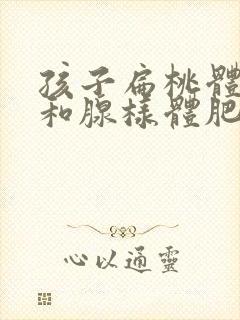 孩子扁桃體
和腺樣體肥
心以通靈